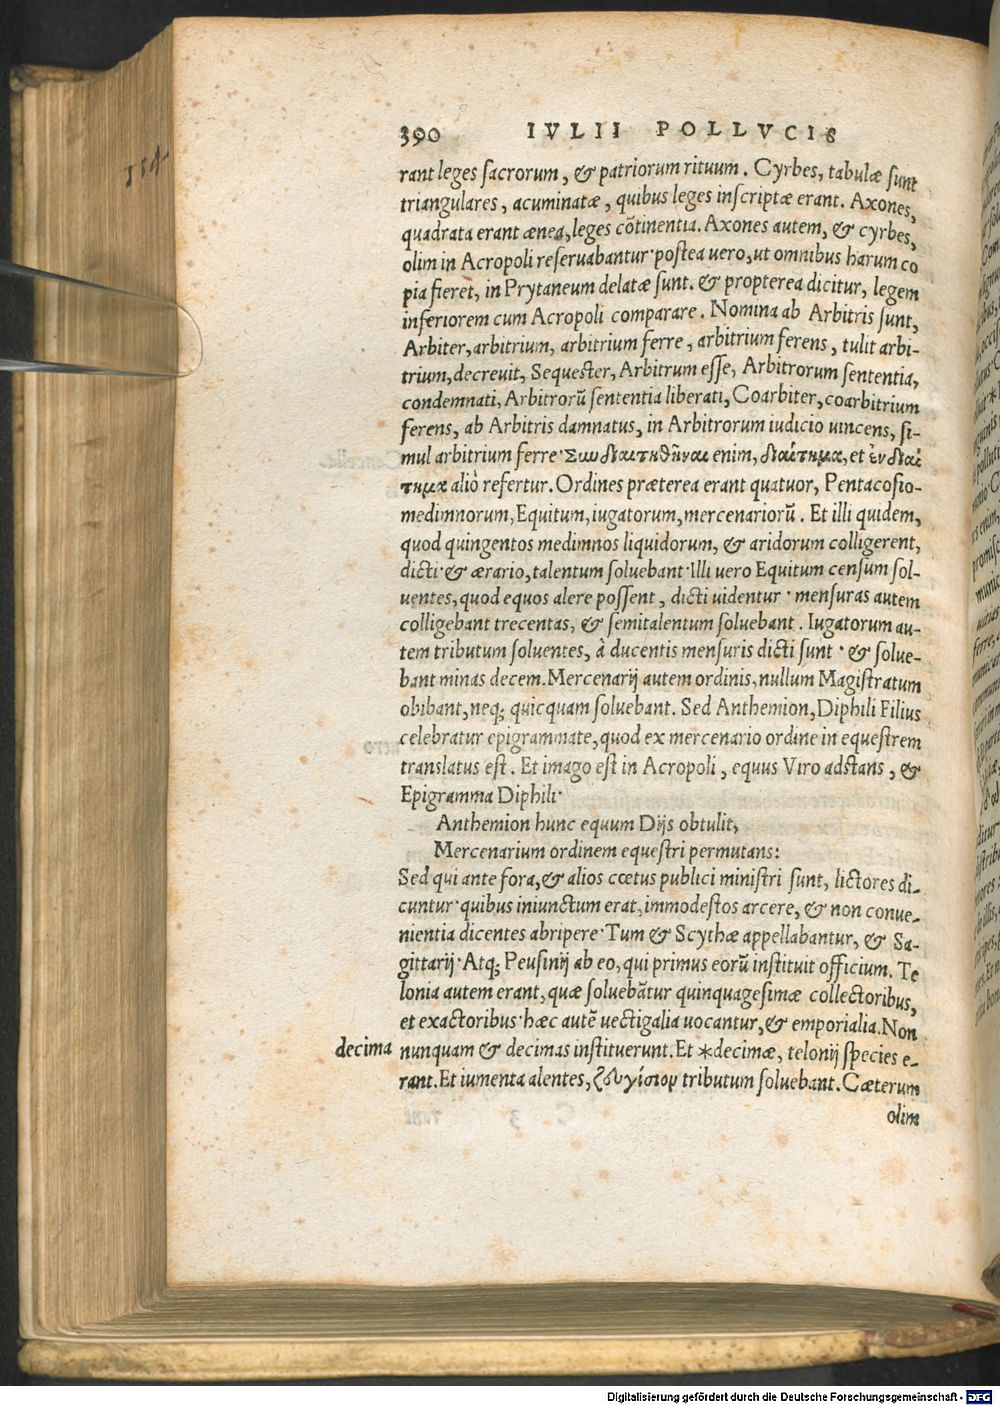 390 IVLII POLLVCIS
114
rant leges sacrorum, & patriorum rituum. Cyrbes, tabulæ sunt
triangulares, acuminatæ, quibus leges inscriptæ erant. Axones,
quadrata erant ænea, leges cõtinentia. Axones autem, & cyrbes,
olim in Acropoli reseruabantur· postea uero, ut omnibus harum co
pia fieret, in Prytaneum delatæ sunt. & propterea dicitur, legem
inferiorem cum Acropoli comparare. Nomina ab Arbitris sunt,
Arbiter, arbitrium, arbitrium ferre, arbitrium ferens, tulit arbi-
trium, decreuit, Sequester, Arbitrum esse, Arbitrorum sententia,
condemnati, Arbitrorũ sententia liberati, Coarbiter, coarbitrium
ferens, ab Arbitris damnatus, in Arbitrorum iudicio uincens, si-
mul arbitrium ferre· Συνδιαιτηθῆναι enim, διαίτημα, et ἐνδιαί
τημα aliò refertur. Ordines præterea erant quatuor, Pentacosio-
medimnorum, Equitum, iugatorum, mercenariorũ. Et illi quidem,
quod quingentos medimnos liquidorum, & aridorum colligerent,
dicti· & ærario, talentum soluebant· Illi uero Equitum censum sol-
uentes, quod equos alere possent, dicti uidentur· mensuras autem
colligebant trecentas, & semitalentum soluebant. Iugatorum au-
tem tributum soluentes, à ducentis mensuris dicti sunt· & solue-
bant minas decem. Mercenarij autem ordinis, nullum Magistratum
obibant, neq; quicquam soluebant. Sed Anthemion, Diphili Filius
celebratur epigrammate, quod ex mercenario ordine in equestrem
translatus est. Et imago est in Acropoli, equus Viro adstans, &
Epigramma Diphili·
Anthemion hunc equum Dijs obtulit,
Mercenarium ordinem equestri permutans:
Sed qui ante fora, & alios cœtus publici ministri sunt, lictores di-
cuntur· quibus iniunctum erat, immodestos arcere, & non conue-
nientia dicentes abripere· Tum & Scythæ appellabantur, & Sa-
gittarij· Atq; Peusinij ab eo, qui primus eorũ instituit officium. Te
lonia autem erant, quæ soluebãtur quinquagesimæ collectoribus,
et exactoribus· hæc autẽ uectigalia uocantur, & emporialia. Non
decima nunquam & decimas instituerunt. Et *decimæ, telonij species e-
rant. Et iumenta alentes, ζδυγίσιορ tributum soluebant. Cæterum
olim
Digitalisierung gefördert durch die Deutsche Forschungsgemeinschaft - DFG